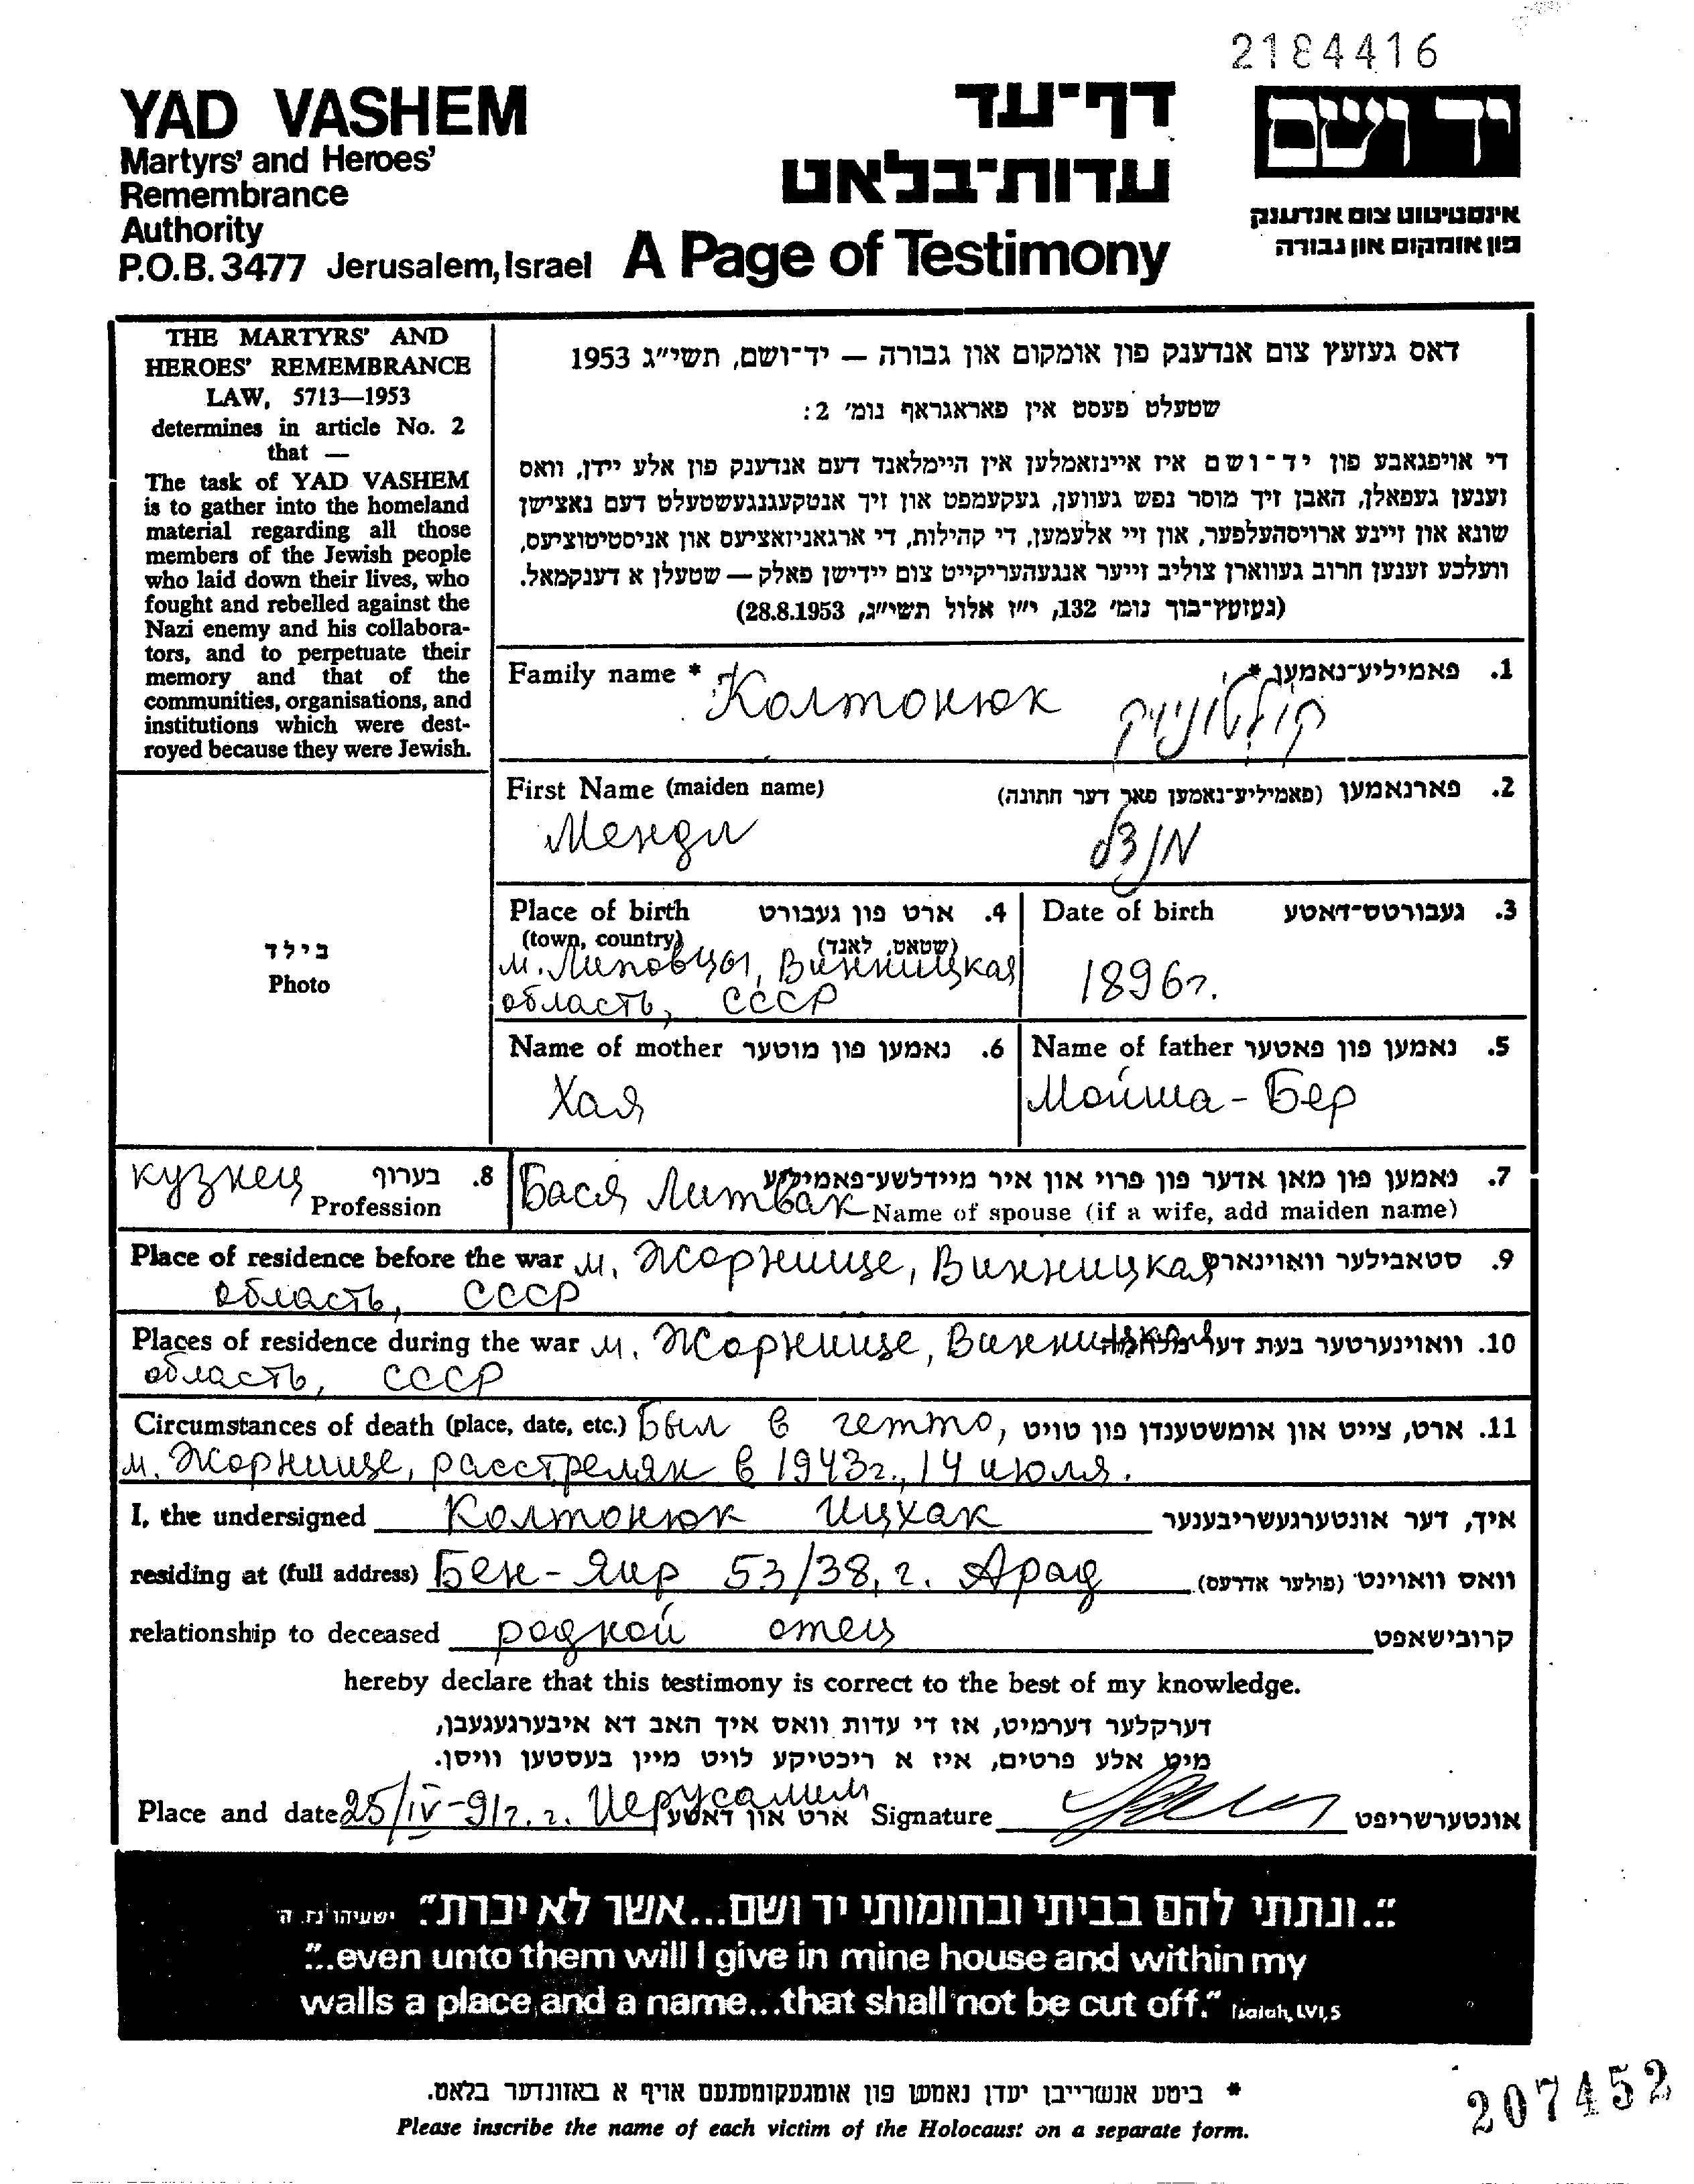 2184416
YAD VASHEM
Martyrs' and Heroes'
Remembrance
Authority
P.O.B. 3477 Jerusalem, Israel
דף־עד
עדות־בלאט
A Page of Testimony
יד ושם
אינסטיטוט צום אנדענק
פון אומקום און גבורה
THE MARTYRS' AND
HEROES' REMEMBRANCE
LAW, 5713—1953
determines in article No. 2
that —
The task of YAD VASHEM
is to gather into the homeland
material regarding all those
members of the Jewish people
who laid down their lives, who
fought and rebelled against the
Nazi enemy and his collabora-
tors, and to perpetuate their
memory and that of the
communities, organisations, and
institutions which were dest-
royed because they were Jewish.
דאס געזעץ צום אנדענק פון אומקום און גבורה — יד־ושם, תשי״ג 1953
שטעלט פעסט אין פאראגראף נומ׳ 2:
די אויפגאבע פון יד־ושם איז איינזאמלען אין היימלאנד דעם אנדענק פון אלע יידן, וואס
זענען געפאלן, האבן זיך מוסר נפש געווען, געקעמפט און זיך אנטקעגנגעשטעלט דעם נאצישן
שונא און זיינע ארויסהעלפער, און זיי אלעמען, די קהילות, די ארגאניזאציעס און אינסטיטוציעס,
וועלכע זענען חרוב געווארן צוליב זייער אנגעהעריקייט צום יידישן פאלק — שטעלן א דענקמאל.
(געזעץ־בוך נומ׳ 132, י״ז אלול תשי״ג, 28.8.1953)
Family name * Колтонюк קולטוניוק 1. פאמיליע־נאמען *
First Name (maiden name) 2. פארנאמען (פאמיליע־נאמען פאר דער חתונה)
Мендл מנדל
בילד
Photo
Place of birth 4. ארט פון געבורט
(town, country) (שטאט, לאנד)
м. Липовцы, Винницкая
область, СССР
Date of birth 3. געבורטס־דאטע
1896г.
Name of mother 6. נאמען פון מוטער
Хая
Name of father 5. נאמען פון פאטער
Мойша-Бер
кузнец 8. בערוף
Profession
Бася Литвак 7. נאמען פון מאן אדער פון פרוי און איר מיידלשע־פאמיליע
Name of spouse (if a wife, add maiden name)
Place of residence before the war м. Жорнище, Винницкая 9. סטאבילער וואוינארט
область, СССР
Places of residence during the war м. Жорнище, Винницкая 10. וואוינערטער בעת דער מלחמה
область, СССР
Circumstances of death (place, date, etc.) Был в гетто, 11. ארט, צייט און אומשטענדן פון טויט
м. Жорнище, расстрелян в 1943г., 14 июля.
I, the undersigned Колтонюк Ицхак איך, דער אונטערגעשריבענער
residing at (full address) Бен-Яир 53/38, г. Арад וואס וואוינט (פולער אדרעס)
relationship to deceased родной отец קרובישאפט
hereby declare that this testimony is correct to the best of my knowledge.
דערקלער דערמיט, אז די עדות וואס איך האב דא איבערגעגעבן,
מיט אלע פרטים, איז א ריכטיקע לויט מיין בעסטען וויסן.
Place and date 25/IV-91г. г. Иерусалим ארט און דאטע Signature אונטערשריפט
״...ונתתי להם בביתי ובחומותי יד ושם...אשר לא יכרת״ ישעיהו נו, ה
“...even unto them will I give in mine house and within my
walls a place and a name...that shall not be cut off.” Isaiah, LVI, 5
* ביטע אנשרייבן יעדן נאמען פון אומגעקומענעם אויף א באזונדער בלאט.
Please inscribe the name of each victim of the Holocaust on a separate form.
207452